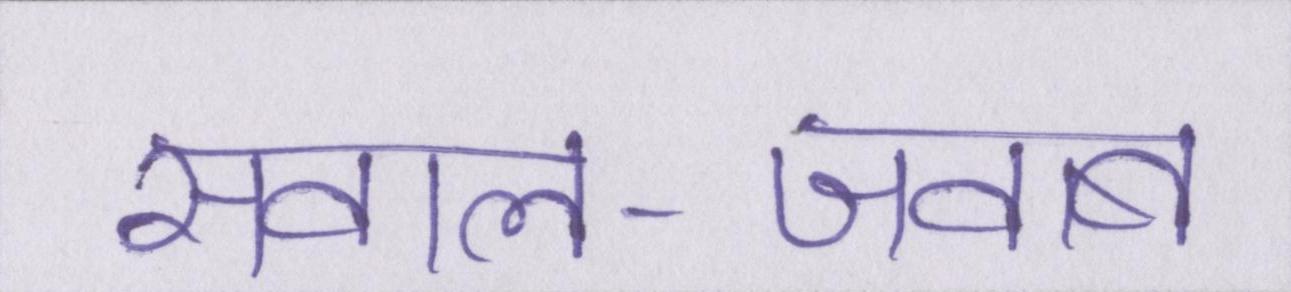 सवाल-जवाब